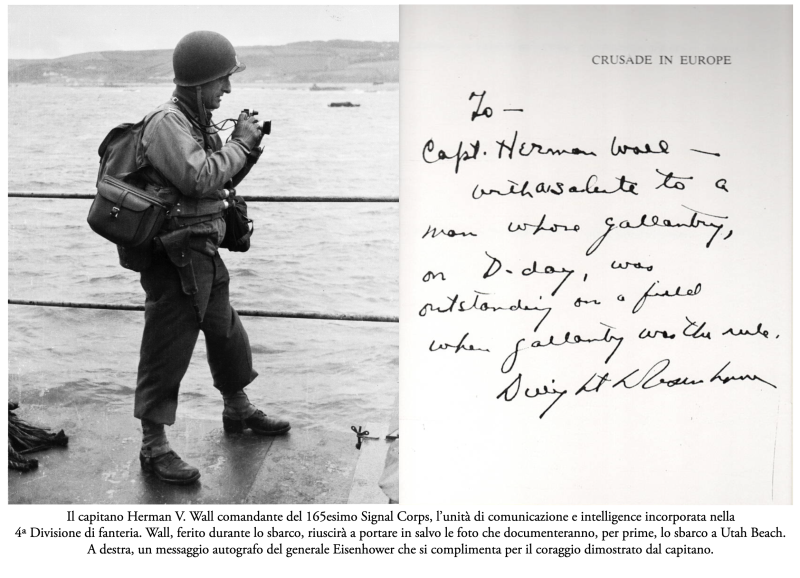 CRUSADE IN EUROPE
To —
Capt. Herman Wall —
with a salute to a
man whose gallantry,
on D-day, was
outstanding on a field
when gallantry was the rule.
Dwight D Eisenhower
Il capitano Herman V. Wall comandante del 165esimo Signal Corps, l’unità di comunicazione e intelligence incorporata nella
4ª Divisione di fanteria. Wall, ferito durante lo sbarco, riuscirà a portare in salvo le foto che documenteranno, per prime, lo sbarco a Utah Beach.
A destra, un messaggio autografo del generale Eisenhower che si complimenta per il coraggio dimostrato dal capitano.